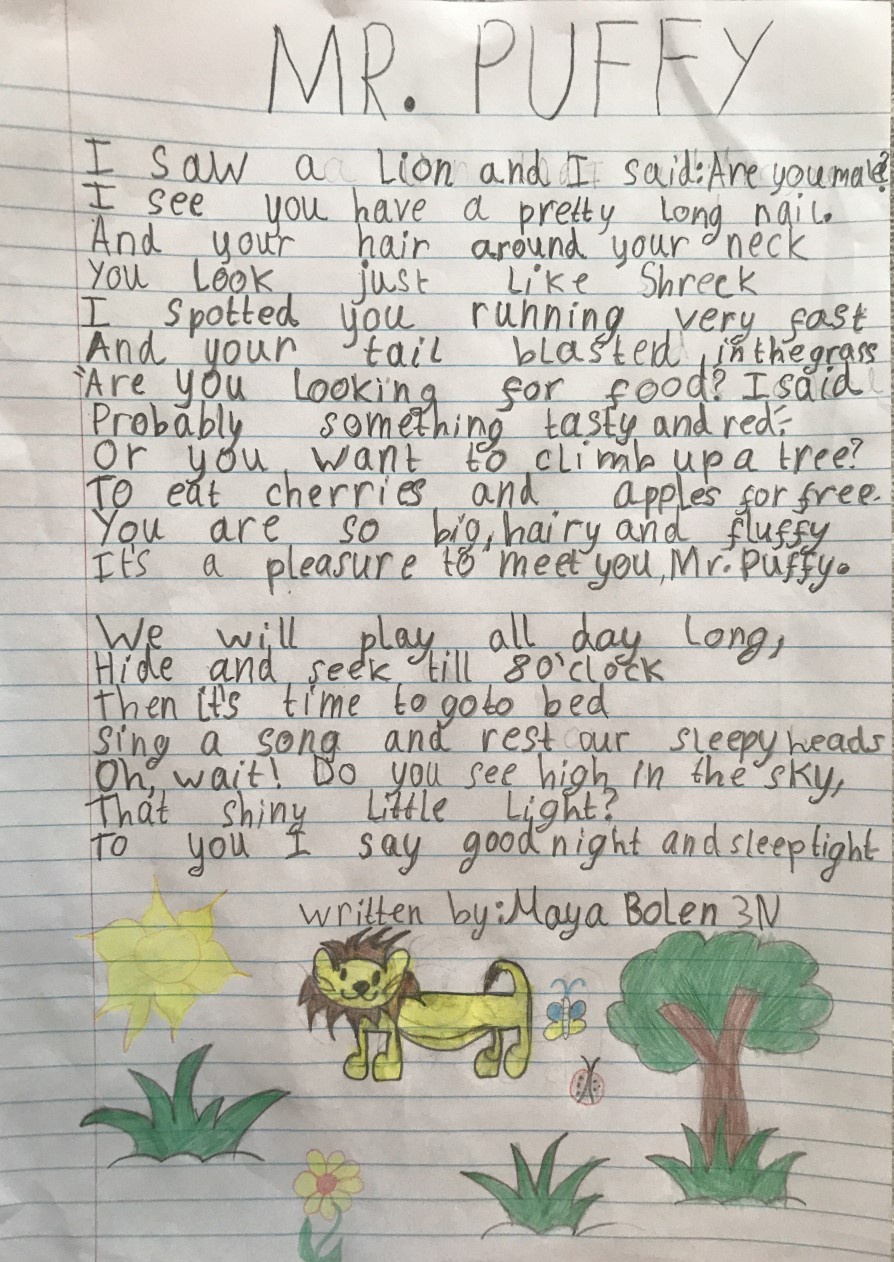 MR. PUFFY
I saw a Lion and I said: Are you male?
I see you have a pretty long nail.
And your hair around your neck
You Look just Like Shreck
I spotted you running very fast
And your tail blasted in the grass
"Are you Looking for food? I said
Probably something tasty and red"
Or you want to climb up a tree?
To eat cherries and apples for free.
You are so big, hairy and fluffy
It's a pleasure to meet you, Mr. Puffy.
We will play all day Long,
Hide and seek till 8 o'clock
Then it's time to go to bed
Sing a song and rest our sleepy heads
Oh, wait! Do you see high in the sky,
That shiny Little Light?
To you I say good night and sleep tight
written by: Maya Bolen 3N